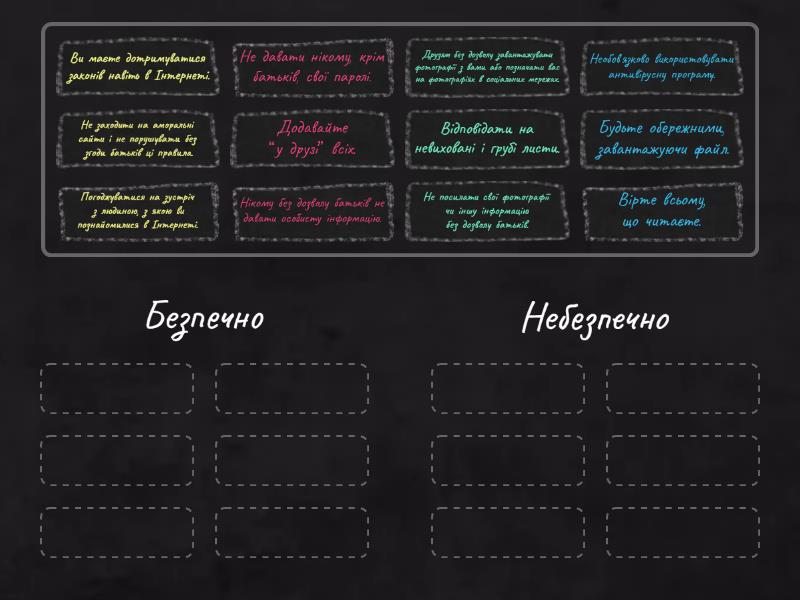 Ви маєте дотримуватися
законів навіть в Інтернеті.
Не давати нікому, крім
батьків, свої паролі.
Друзям без дозволу завантажувати
фотографії з вами або позначати вас
на фотографіях в соціальних мережах.
Необов'язково використовувати
антивірусну програму.
Не заходити на аморальні
сайти і не порушувати без
згоди батьків ці правила.
Додавайте
"у друзі" всіх.
Відповідати на
невиховані і грубі листи.
Будьте обережними,
завантажуючи файл.
Погоджуватися на зустріч
з людиною, з якою ви
познайомилися в Інтернеті.
Нікому без дозволу батьків не
давати особисту інформацію.
Не посилати свої фотографії
чи іншу інформацію
без дозволу батьків.
Вірте всьому,
що читаєте.
Безпечно
Небезпечно